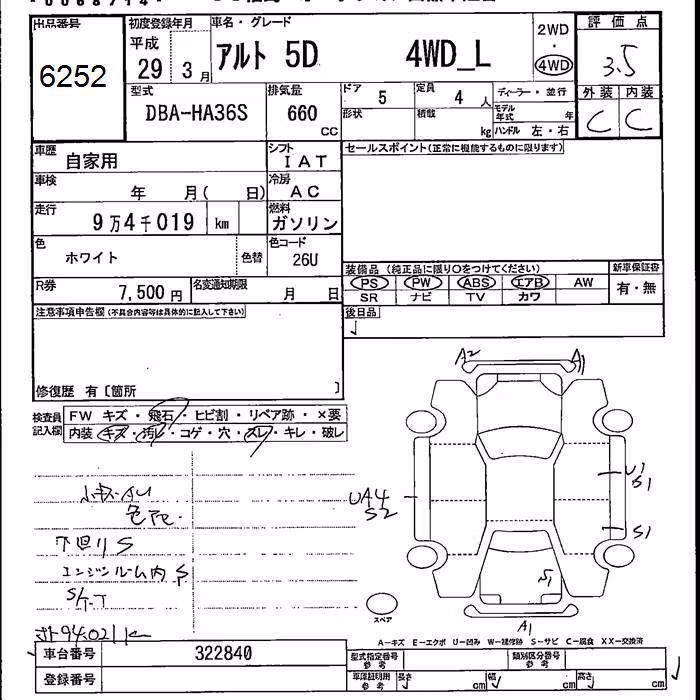 出品番号
6252
初度登録年月
平成
29 3月
車名・グレード
アルト 5D 4WD_L
2WD
・
4WD
評価点
3.5
外装 内装
C C
型式
DBA-HA36S
排気量
660
CC
ドア
5
定員
4 人
形状
積載
kg
ディーラー・並行
モデル年式
年
ハンドル 左・右
車歴
自家用
シフト
IAT
セールスポイント(正常に機能するものに限ります)
車検
年 月( 日)
冷房
AC
走行
9万4千019 km
燃料
ガソリン
色
ホワイト
色替
色コード
26U
装備品 (純正品に限り○をつけてください)
新車保証書
PS PW ABS エアB AW
有・無
SR ナビ TV カワ
R券
7,500円
名変通知期限
月 日
注意事項申告欄(不具合内容等は具体的に記入して下さい)
後日品
修復歴 有〔箇所 〕
検査員
記入欄
FW キズ・飛石・ヒビ割・リペア跡・×要
内装 キズ・汚レ・コゲ・穴・スレ・キレ・破レ
A2 A1
小キズAU
UA4
S2
U1
S1
S1
下回りS
エンジンルーム内S
S1
スペア
A1
A-キズ E-エクボ U-凹み W-補修跡 S-サビ C-腐食 XX-交換済
車台番号
322840
型式指定番号
参考
類別区分番号
参考
登録番号
車庫証明用
参考
長さ cm 幅 cm 高さ cm